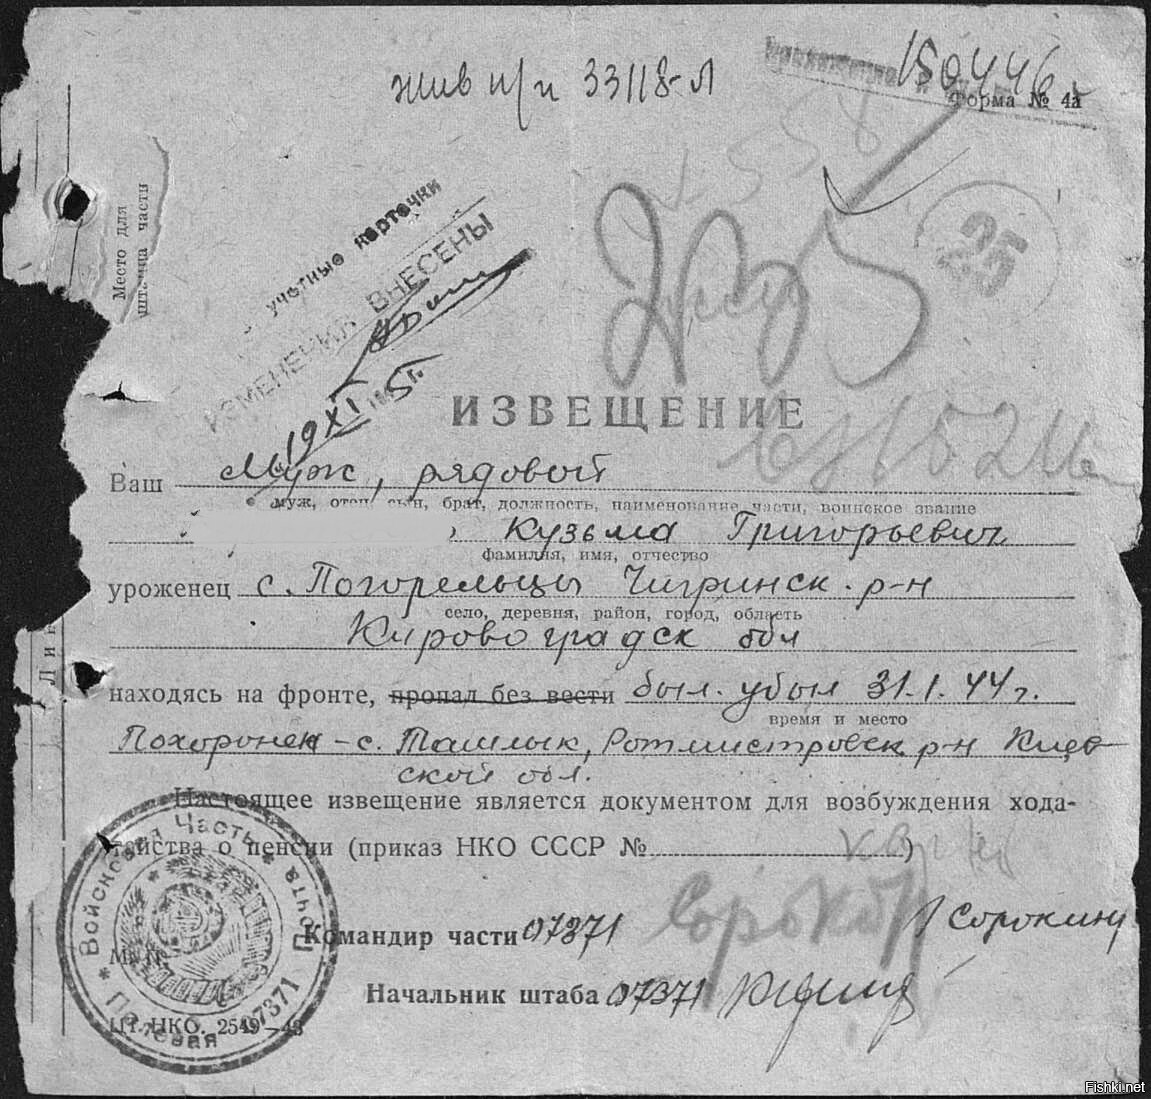 жив п/п 33118-Л
150446
Форма № 4а
Место для
штампа части
учетные карточки
ИЗМЕНЕНИЯ ВНЕСЕНЫ
19 XI 5 г.
25
ИЗВЕЩЕНИЕ
Ваш муж, рядовой
муж, отец, сын, брат, должность, наименование части, воинское звание
, Кузьма Григорьевич
фамилия, имя, отчество
уроженец с. Погорельцы Чигринск. р-н
село, деревня, район, город, область
Кировоградск обл
находясь на фронте, пропал без вести был. убыл 31.1.44 г.
время и место
Похоронен - с. Ташлык, Ротмистровск р-н Киев
ской обл.
Настоящее извещение является документом для возбуждения хода-
тайства о пенсии (приказ НКО СССР №)
Командир части 07371 Сорокин
Начальник штаба 07371
М. П.
Войсковая Часть * Почта
* Полевая 07371
ЦТ. НКО. 2549—43
Fishki.net